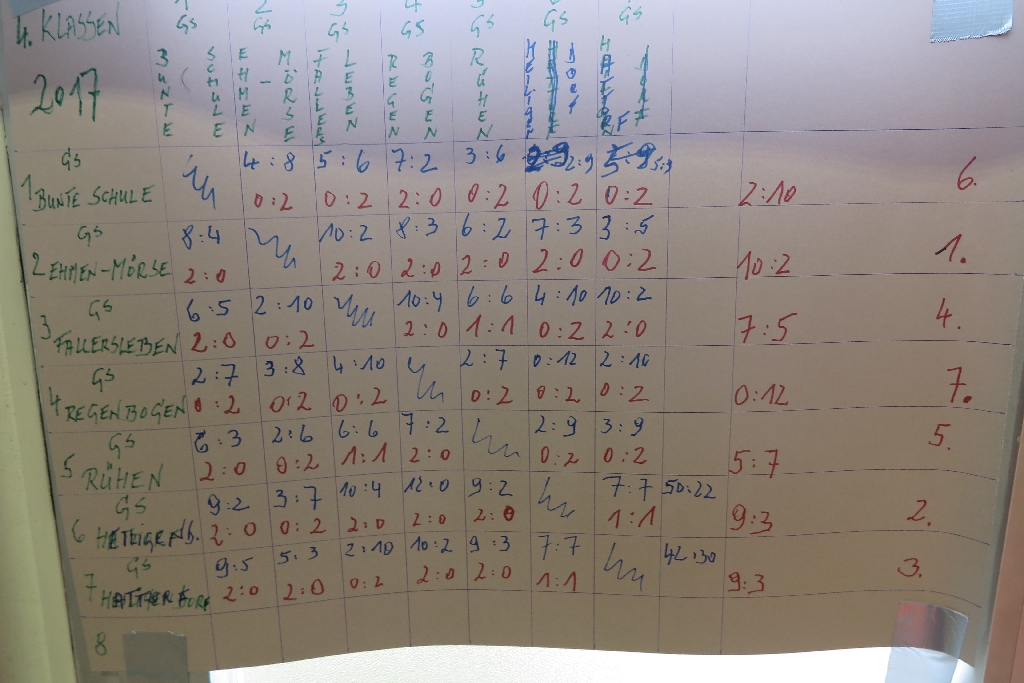 4. KLASSEN
2017
1 2 3 4 5 6
GS GS GS GS GS GS GS
BUNTE SCHULE EHMEN - MÖRSE FALLERS LEBEN REGEN BOGEN RÜHEN
GS 4:8 5:6 7:2 3:6 2:9 5:9
1 BUNTE SCHULE 0:2 0:2 2:0 0:2 0:2 0:2 2:10 6.
GS 8:4 10:2 8:3 6:2 7:3 3:5
2 EHMEN-MÖRSE 2:0 2:0 2:0 2:0 2:0 0:2 10:2 1.
GS 6:5 2:10 10:4 6:6 4:10 10:2
3 FALLERSLEBEN 2:0 0:2 2:0 1:1 0:2 2:0 7:5 4.
GS 2:7 3:8 4:10 2:7 0:12 2:10
4 REGENBOGEN 0:2 0:2 0:2 0:2 0:2 0:2 0:12 7.
GS 6:3 2:6 6:6 7:2 2:9 3:9
5 RÜHEN 2:0 0:2 1:1 2:0 0:2 0:2 5:7 5.
GS 9:2 3:7 10:4 12:0 9:2 7:7 50:22
6 HEILIGEND. 2:0 0:2 2:0 2:0 2:0 1:1 9:3 2.
GS 9:5 5:3 2:10 10:2 9:3 7:7 42:30
7 2:0 2:0 0:2 2:0 2:0 1:1 9:3 3.
8